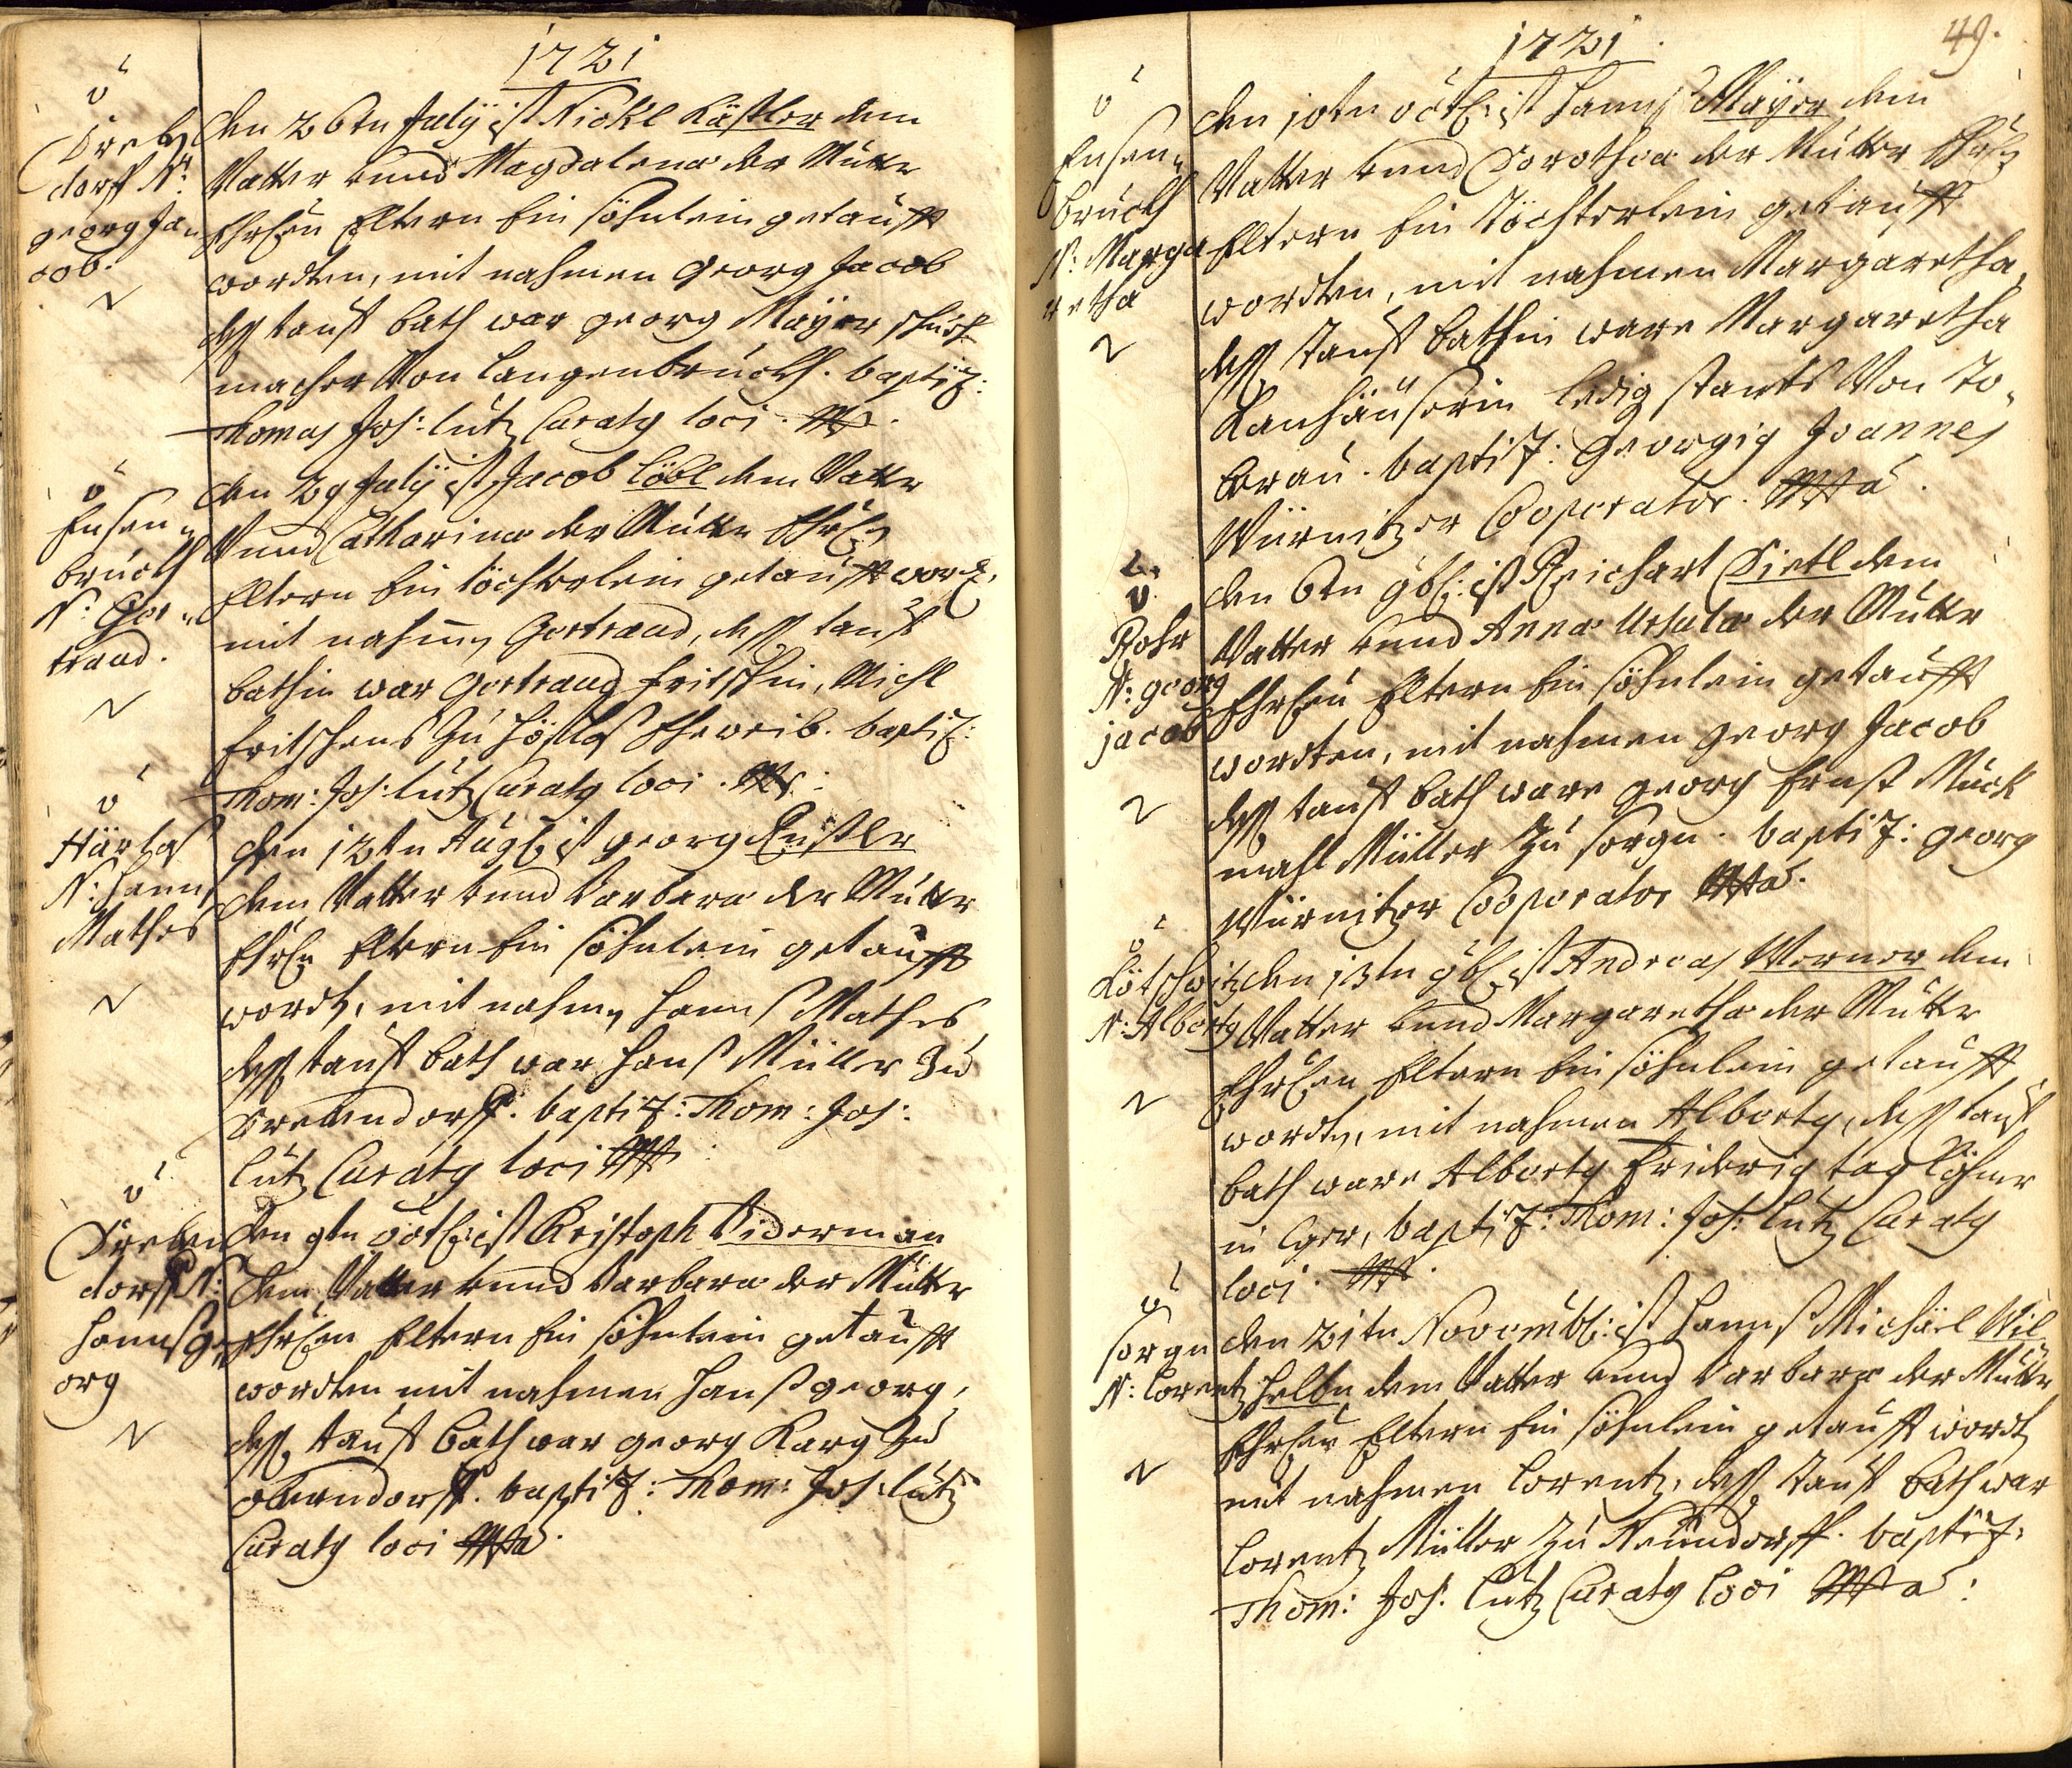 1721
Trebendorff N:
georg Jacob.
den 26ten July ist Nickl Kästler dem
Vatter vund Magdalena der Mutter
Ehrlen Eltern Ein söhnlein getaufft
wordten, mit nahmen georg Jacob
dess tauf bath war georg Mayer schuh
macher Von Langenbruckh. baptiz:
Thomas Jos: Lutz Curatg loci
Ensenbruckh
N: Gertraud.
den 29 July ist Jacob Löbl dem Vatter
Vund Catharina der Mutter Ehrln
Eltern Ein töchterlein getaufft word:
mit nahmen Gertraud, dess tauf
bathin war Gertraud Fritschin, Michl
Fritschens Zu Höslas Eheweib. baptiz:
Thom: Jos: Lutz Curatg loci
Härlas
N: Hanns
Mathes
den 12ten Aug ist georg
dem Vatter vund Barbara der Mutter
Ehrln Eltern Ein söhnlein getaufft
wordn, mit nahmen Hanns Mathes
dess tauf bath war Hanß Müller Zu
Trebendorff. baptiz: Thom: Jos:
Lutz Curatg loci
Trebendorff N:
Hanns georg
den 9ten octb: ist Christoph Biderman
dem Vatter vund Barbara der Mutter
Ehrlen Eltern Ein söhnlein getaufft
wordten mit nahmen Hanß georg,
dess tauf bath war georg Karg Zu
obendorff. baptiz: Thom: Jos: Lutz
Curatg loci
49.
1721
Ensenbruckh
N: Margaretha
den 10ten octb: ist Hannß Mayer dem
Vatter vund Dorothea der Mutter Ehrln
Eltern Ein töchterlein getaufft
wordten, mit nahmen Margaretha,
dess tauf bathin ware Margaretha
Kanhäuserin ledig stants Von to„
brau. baptiz: Georgig Joannes
Würnitzer Cooperator.
Rohr
N: georg
jacob
den 6ten 9b: ist Reichart Dietl dem
Vatter vund Anna Ursula der Mutter
Ehrlen Eltern Ein söhnlein getaufft
wordten, mit nahmen georg Jacob
dess tauf bath ware georg Ernst Muck
mahl Müller Zu sorgn. baptiz: georg
Würnitzer Cooperator
Kötschwitz
N: Albertg
den 13ten 9b: ist Andreas Werner dem
Vatter vund Margaretha der Mutter
Ehrlen Eltern Ein söhnlein getaufft
wordn, mit nahmen Albertg, dess tauf
bath ware Albertg Friderig taglöhner
in Eger, baptiz: Thom: Jos: Lutz Curatg
loci.
sorgn
N: Lorentz
den 21ten Novemb: ist Hannß Michäel Wil„
helbn dem Vatter vund Barbara der Mutter
Ehrlen Eltern Ein söhnlein getaufft wordn
mit nahmen Lorentz, dess tauf bath war
Lorentz Müller Zu Neundorff. baptiz:
Thom: Jos: Lutz Curatg loci